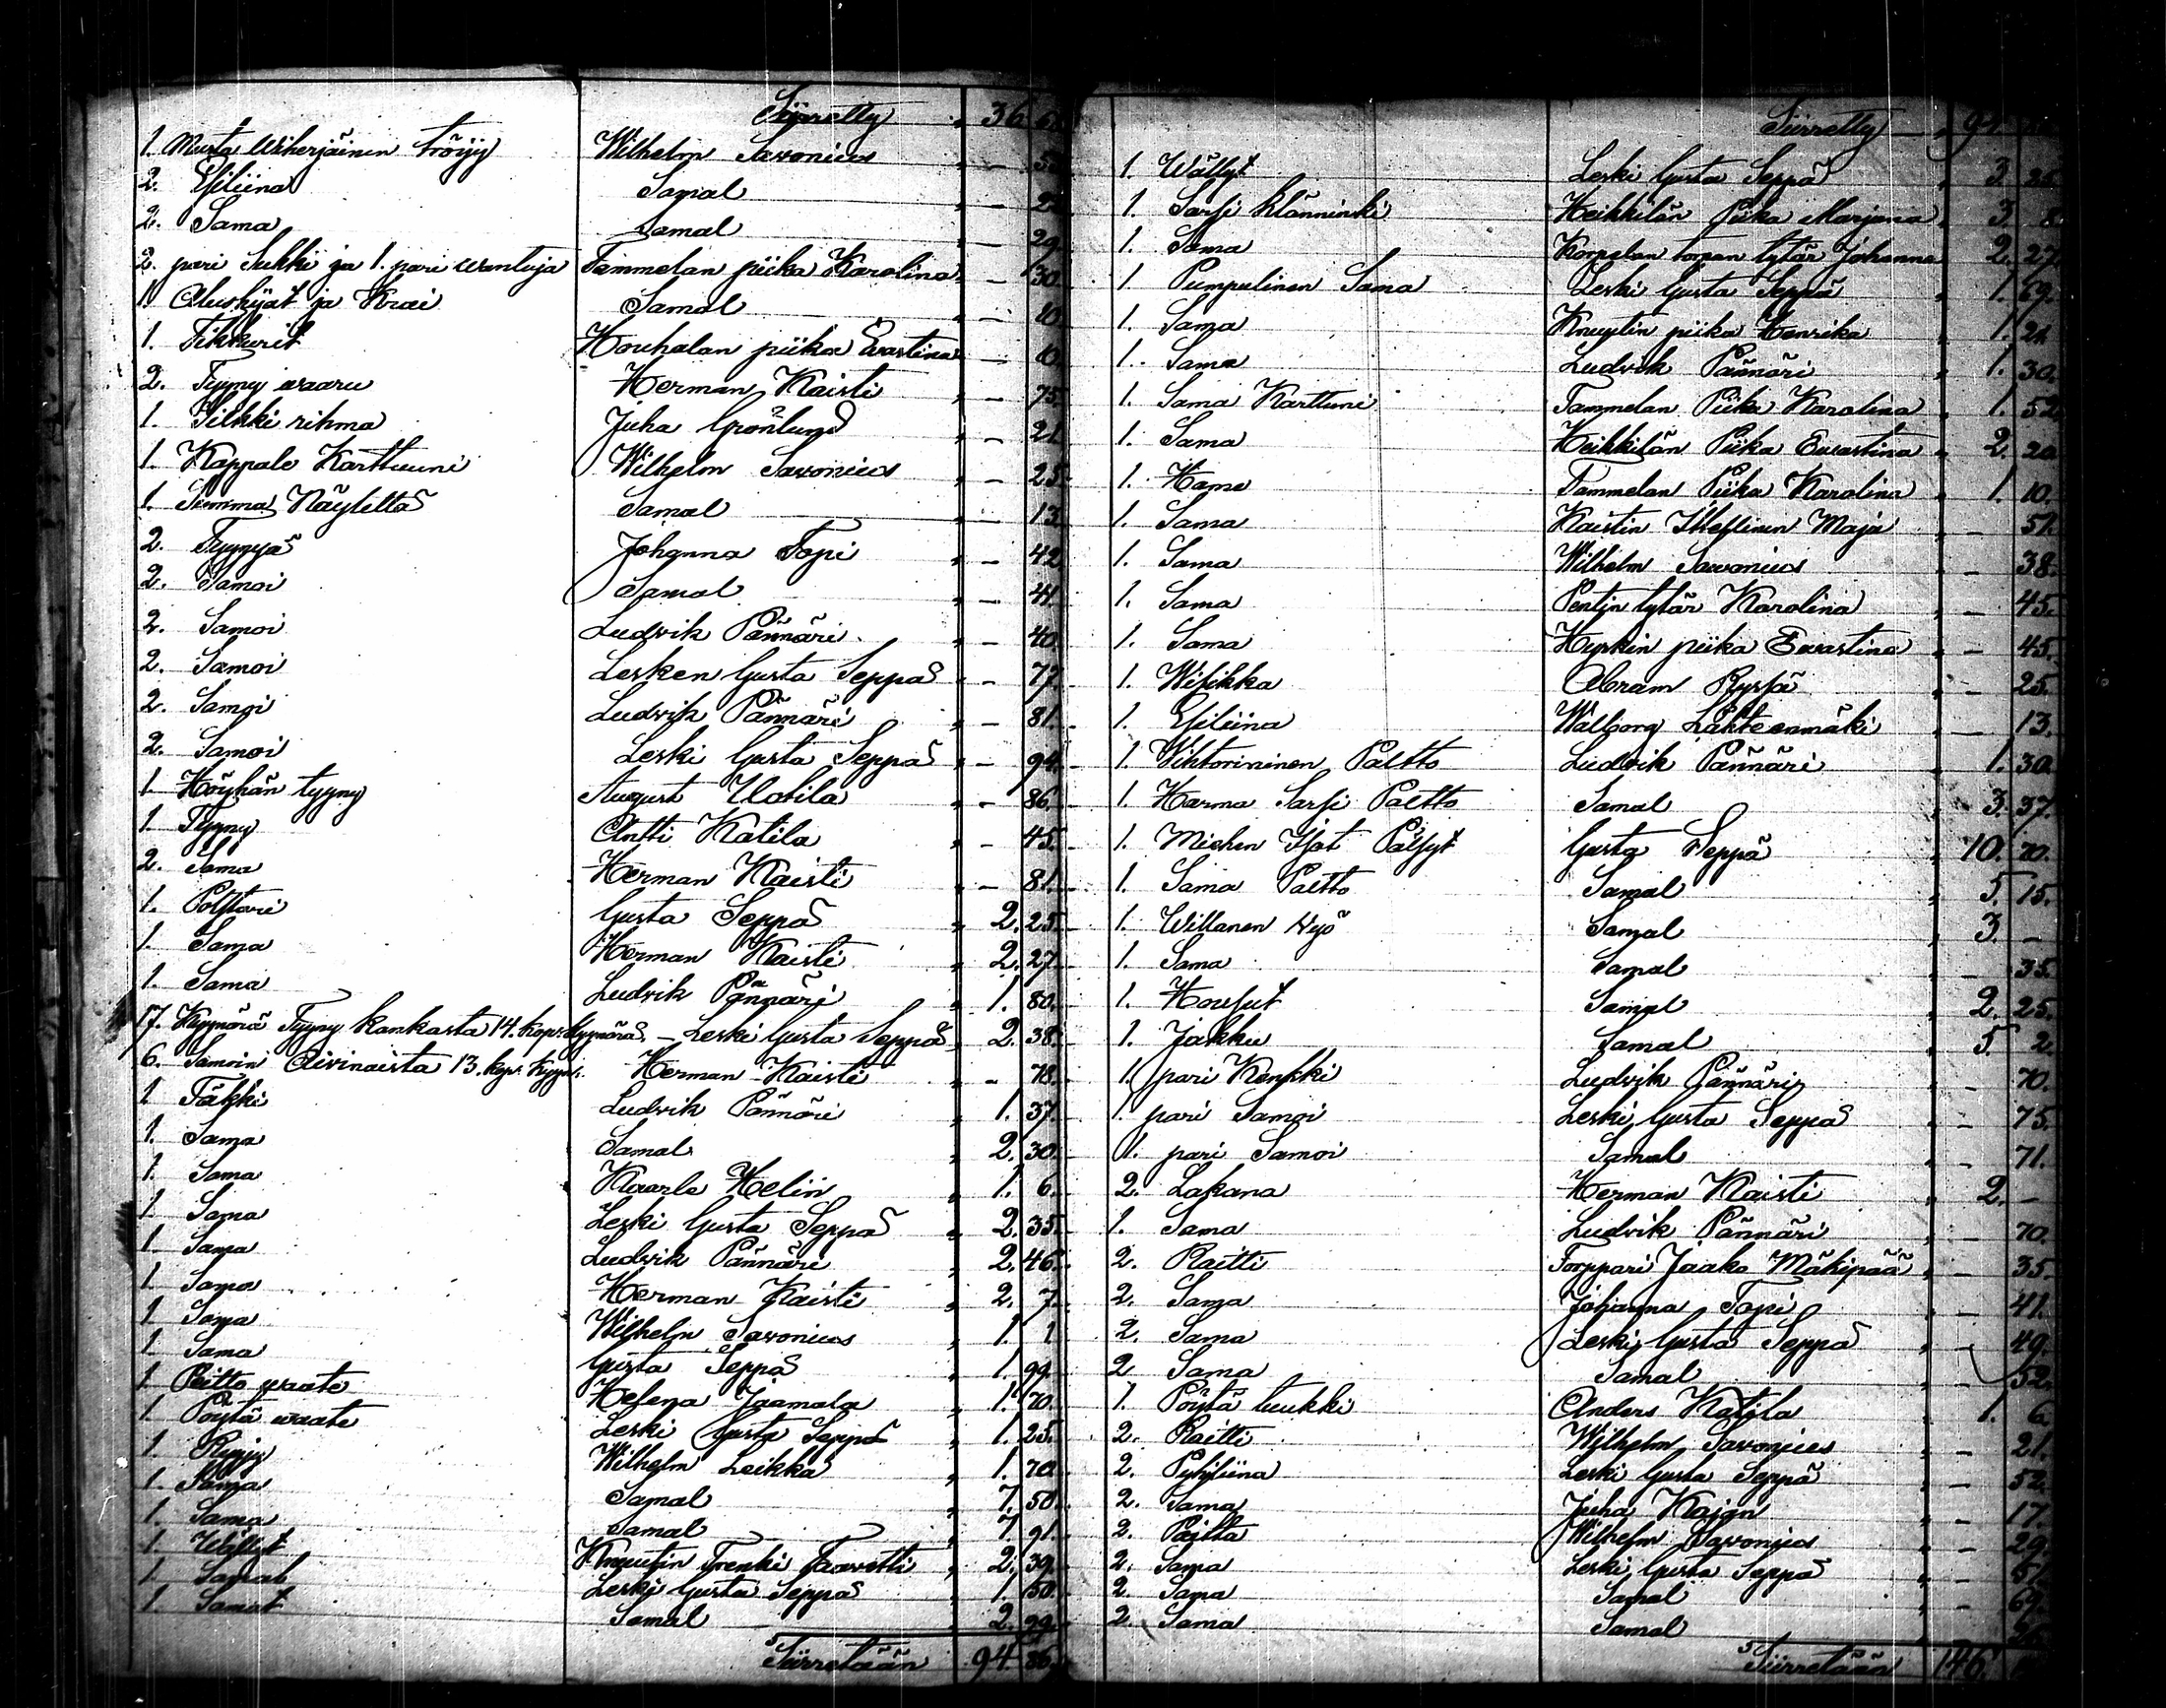 Siirretty 36
1. Musta wiherjäinen tröijy Wilhelm Savonius —
2. Esiliina Samal —
2. Sama Samal — 29.
2. pari Sukki ja 1. pari wantuja Tammelan piika Karolina — 30.
1. Alushijat ja Krai Samal — 10
1. Tikkurit Kouhalan piika Evastina — 10.
2. Tyyny waaru Herman Kaisti — 75.
1. Silkki rihma Juha Grönlund — 21
1. Kappale Karttuuni Wilhelm Savonius — 25.
1. Summa Näylittä Samal — 13.
2. Tyynyä Johanna Topi — 42
2. Samoi Samal — 41.
2. Samoi Ludvik Pännäri — 40.
2. Samoi Lesken Gusta Seppä — 77.
2. Samoi Ludvik Pännäri — 81.
2. Samoi Leski Gusta Seppä — 94.
1. Höyhän tyyny August Uotila — 86.
1. Tyyny Antti Katila — 45.
2. Sama Herman Kaisti — 81.
1. Polstari Gusta Seppä 2. 25.
1. Sama Herman Kaisti 2. 27.
1. Sama Ludvik Pännäri 1. 80.
17. Kyynärä Tyyny kankasta 14. kop. Kyynärä. — Leski Gusta Seppä 2. 38.
6. Samoin Aivinaista 13. kop. kyyn. Herman Kaisti — 78.
1 Täkki Ludvik Pännäri 1. 37.
1. Sama Samal 2. 30.
1. Sama Kaarle Helin 1. 6.
1. Sama Leski Gusta Seppä 2. 35.
1. Sama Ludvik Pännäri 2. 46.
1. Sama Herman Kaisti 2. 7.
1 Sama Wilhelm Savonius 1. 1
1 Sama Gusta Seppä 1. 99.
1 Peitto waate Helena Jaamala 1. 70.
1 Pöytä waate Leski Gusta Seppä 1. 25.
1 Ryijy Wilhelm Leikka 1. 70.
1. Sama Samal 7. 50.
1. Sama Samal 7. 91.
1 Wällyt Knuutin Trenki Taavetti 2. 39.
1 Samat Leski Gusta Seppä 1. 50.
1 Samat Samal 2. 99.
Siirretään 94 86.
Siirretty
1. Wällyt Leski Gusta Seppä 3. 25.
1. Sarsi klänninki Heikkilän Piika Marjana 3. 8.
1. Sama Korpelan torpan tytär Johanna 2. 27.
1 Pumpulinen Sama Leski Gusta Seppä 1. 69.
1. Sama Knuutin piika Henrika 1. 21.
1. Sama Ludvik Pännäri 1. 30.
1. Sama Karttuni Tammelan Piika Karolina 1. 52
1. Sama Heikkilän Piika Evastina 2. 20
1. Hame Tammelan Piika Karolina 1. 10.
1. Sama Kaistin Maja — 51.
1. Sama Wilhelm Savonius — 38.
1. Sama Pentin tytär Karolina — 45.
1. Sama Hyrkin piika Evastina — 45.
1. Wilikka Abram Ryssä — 25.
1. Esiliina Walborg Lähteenmäki — 13.
1 Wihtorininen Paltto Ludvik Pännäri 1. 30.
1. Harma Sarsi Paltto Samal 3. 37.
1. Miehen Isot Pälsyt Gusta Seppä 10. 70.
1. Sama Paltto Samal 5. 15.
1. Willanen Wyö Samal 3. —
1. Sama Samal — 35.
1. Housut Samal 2. 25.
1. Jakku Samal 5. 2.
1. pari Kenkki Ludvik Pännäri — 70.
1. pari Samoi Leski Gusta Seppä — 75.
1. pari Samoi Samal — 71.
2. Lakana Herman Kaisti 2. —
1. Sama Ludvik Pännäri — 70.
2. Raitti Torppari Jaako Mäkipää — 35.
2. Sama Johanna Topi — 41.
2. Sama Leski Gusta Seppä — 49.
2 Sama Samal — 52.
1. Pöytä tuukki Anders Katila 1. 6.
2. Raitti Wilhelm Savonius — 21.
2. Pyhiliina Leski Gusta Seppä — 52.
2. Sama Juha Kajan — 17.
2. Raitta Wilhelm Savonius — 29.
2. Sama Leski Gusta Seppä — 51.
2 Sama Samal — 69.
2. Sama Samal
Siirretään 146.